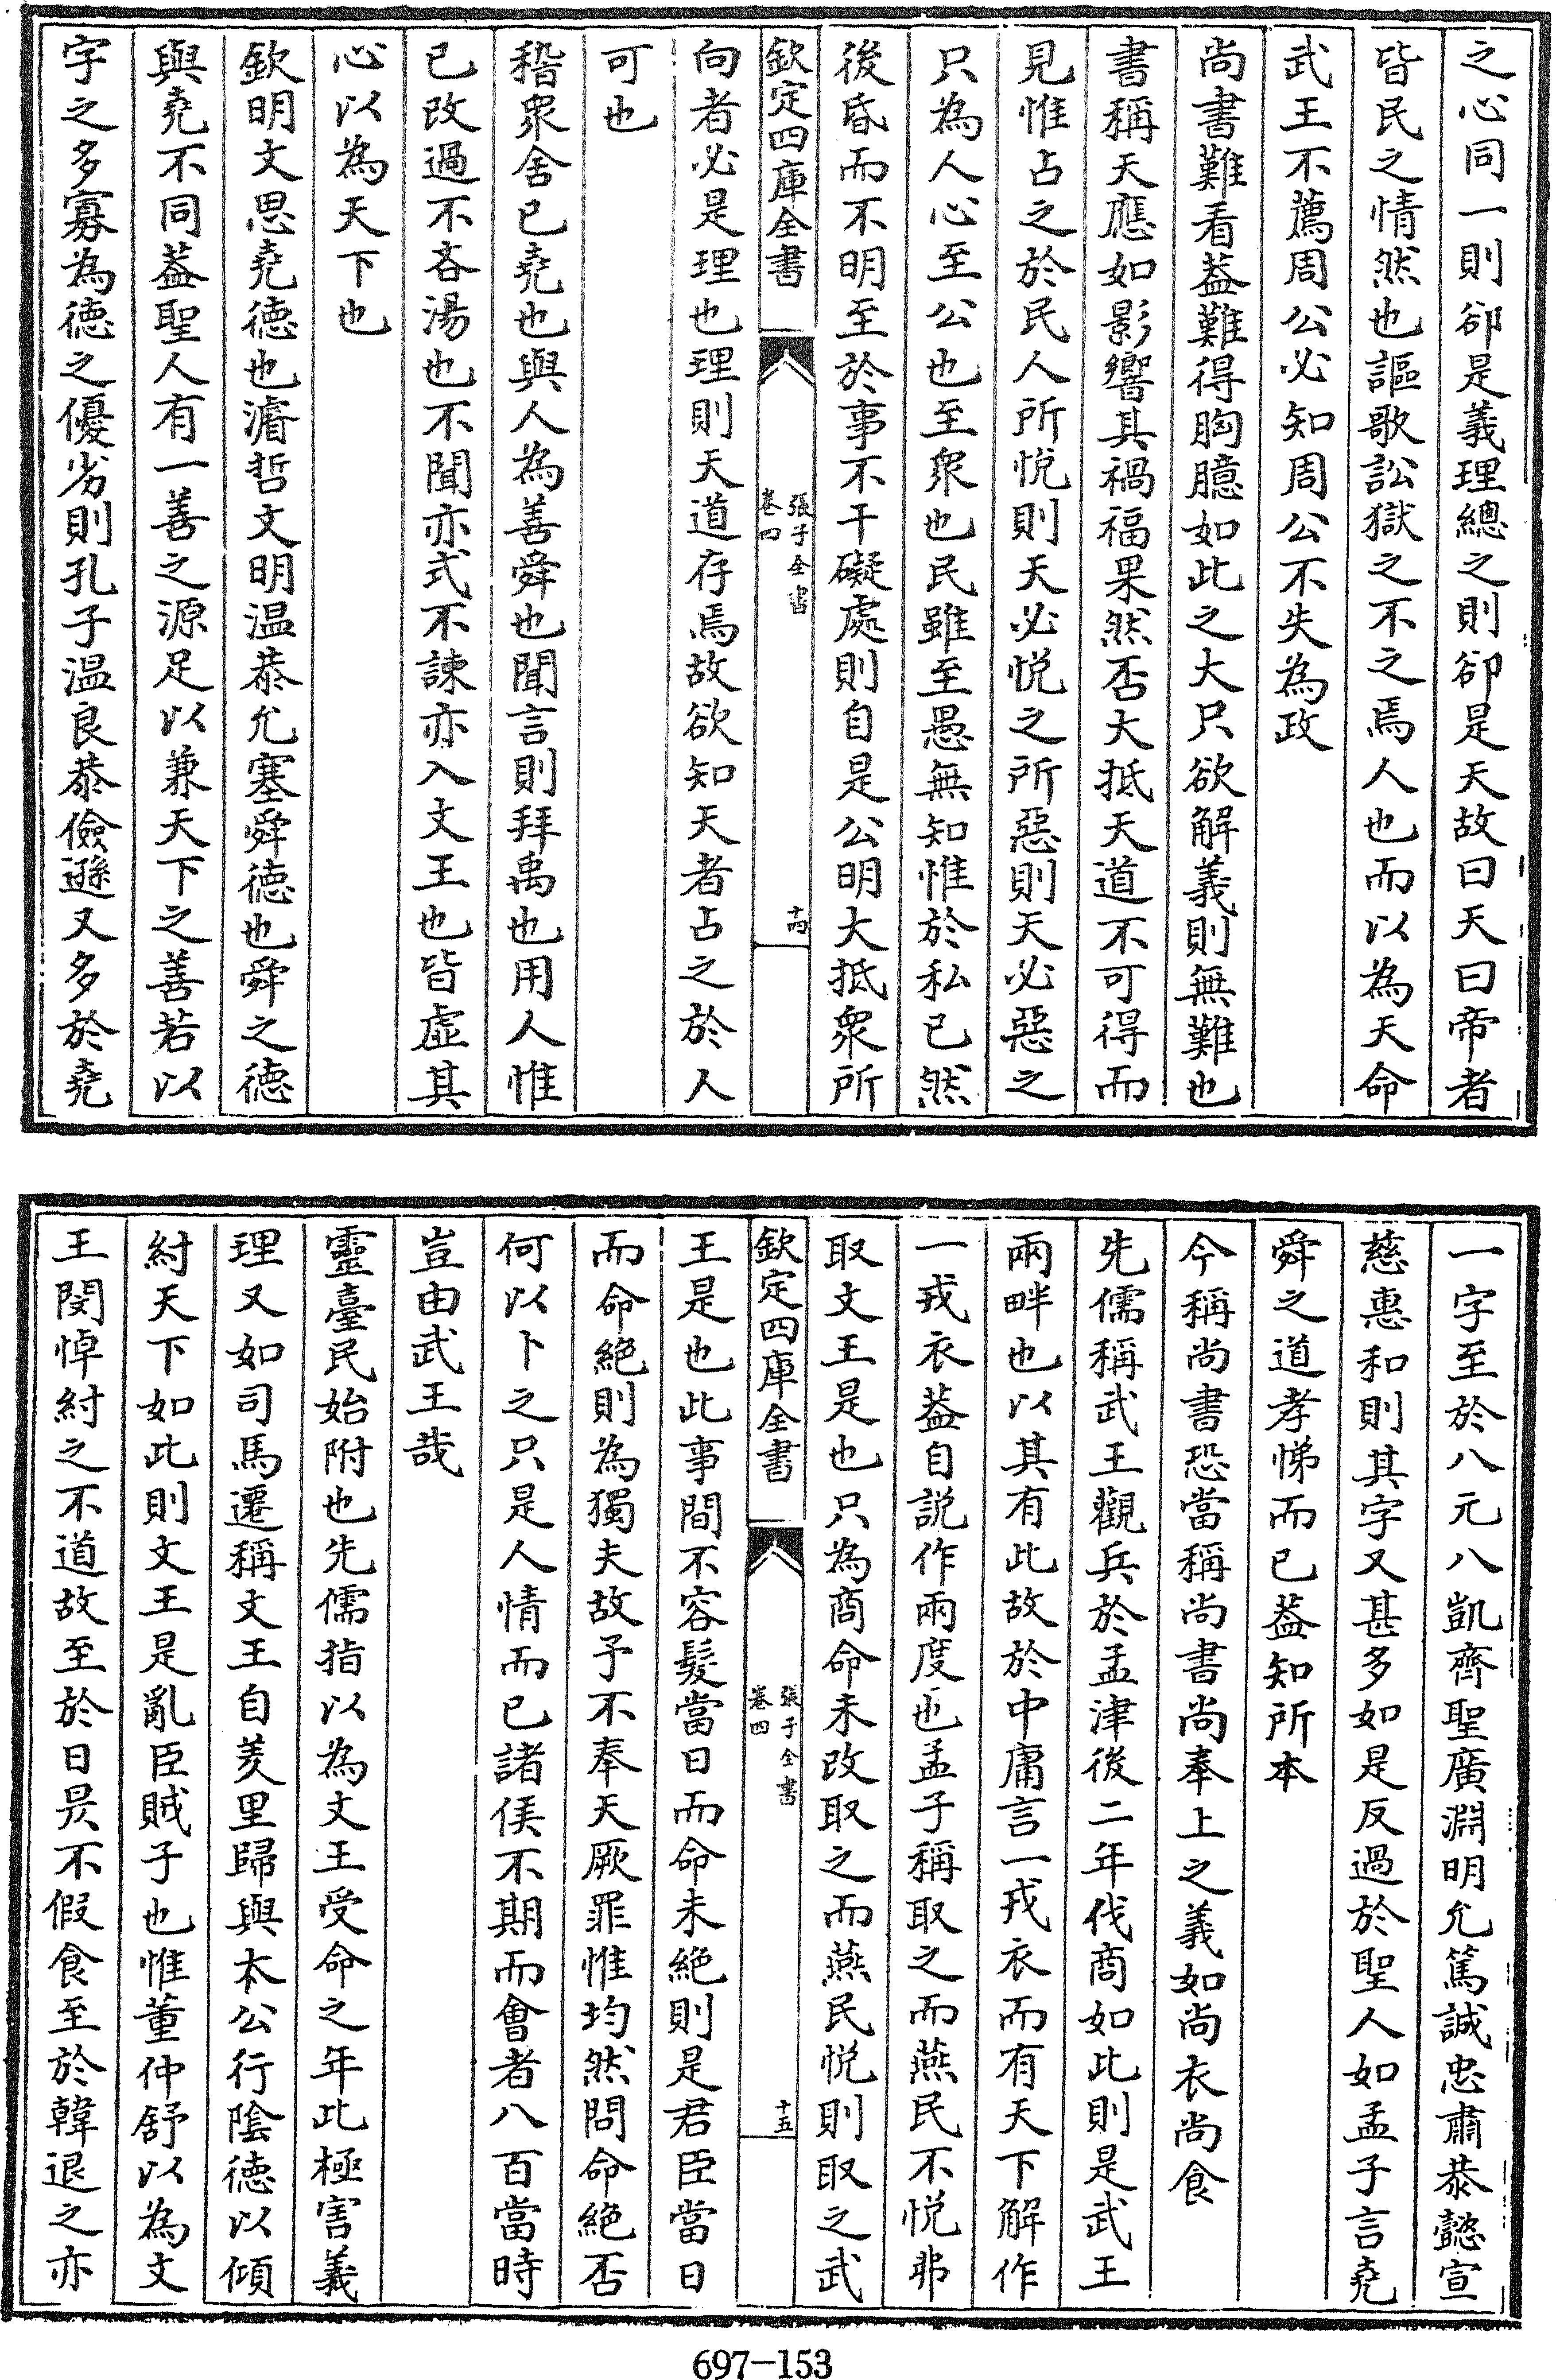 之心同一則卻是義理總之則卻是天故曰天曰帝者
皆民之情然也謳歌訟獄之不之焉人也而以為天命
武王不薦周公必知周公不失為政
尚書難看葢難得胸臆如此之大只欲解義則無難也
書稱天應如影響其禍福果然否大抵天道不可得而
見惟占之於民人所悅則天必悅之所惡則天必惡之
只為人心至公也至衆也民雖至愚無知惟於私已然
後昏而不明至於事不干礙處則自是公明大抵衆所
欽定四庫全書
張子全書
卷四
十四
向者必是理也理則天道存焉故欲知天者占之於人
可也
稽衆舍已堯也與人為善舜也聞言則拜禹也用人惟
已改過不吝湯也不聞亦式不諫亦入文王也皆虛其
心以為天下也
欽明文思堯德也濬哲文明温恭允塞舜德也舜之德
與堯不同葢聖人有一善之源足以兼天下之善若以
字之多寡為德之優劣則孔子温良恭儉遜又多於堯
一字至於八元八凱齊聖廣淵明允篤誠忠肅恭懿宣
慈惠和則其字又甚多如是反過於聖人如孟子言堯
舜之道孝悌而已葢知所本
今稱尚書恐當稱尚書尚奉上之義如尚衣尚食
先儒稱武王觀兵於孟津後二年伐商如此則是武王
兩畔也以其有此故於中庸言一戎衣而有天下解作
一戎衣葢自説作兩度也孟子稱取之而燕民不悅弗
取文王是也只為商命未改取之而燕民悅則取之武
欽定四庫全書
張子全書
卷四
十五
王是也此事間不容髮當日而命未絶則是君臣當日
而命絶則為獨夫故予不奉天厥罪惟均然問命絶否
何以卜之只是人情而已諸侯不期而會者八百當時
豈由武王哉
靈臺民始附也先儒指以為文王受命之年此極害義
理又如司馬遷稱文王自羑里歸與太公行陰德以傾
紂天下如此則文王是亂臣賊子也惟董仲舒以為文
王閔悼紂之不道故至於日昃不假食至於韓退之亦
697-153